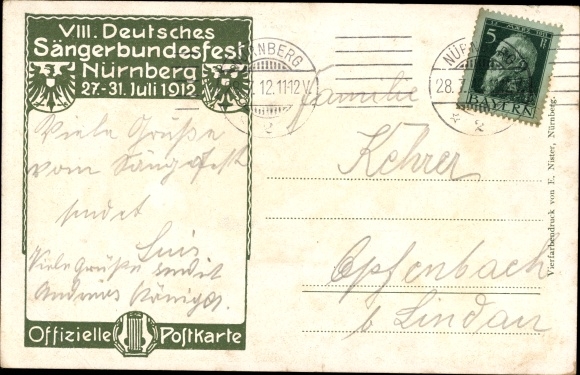 VIII. Deutsches
Sängerbundesfest
Nürnberg
27.-31. Juli 1912
Viele Grüße
vom Sängerfest
sendet
Luis
Viele Grüße sendet
Andreas
Offizielle Postkarte
NÜRNBERG
12.11-12V.
2
NÜRNBERG
28.
2
1911
5
BAYERN
Familie
Kehrer
Opfenbach
b Lindau
Vierfarbendruck von E. Nister, Nürnberg.